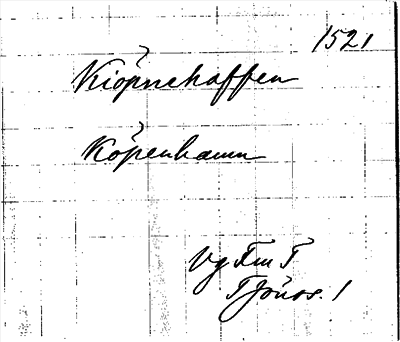 1521
Kiöpnehaffen
Köpenhamn
Vg Fm T
Tjönos. 1